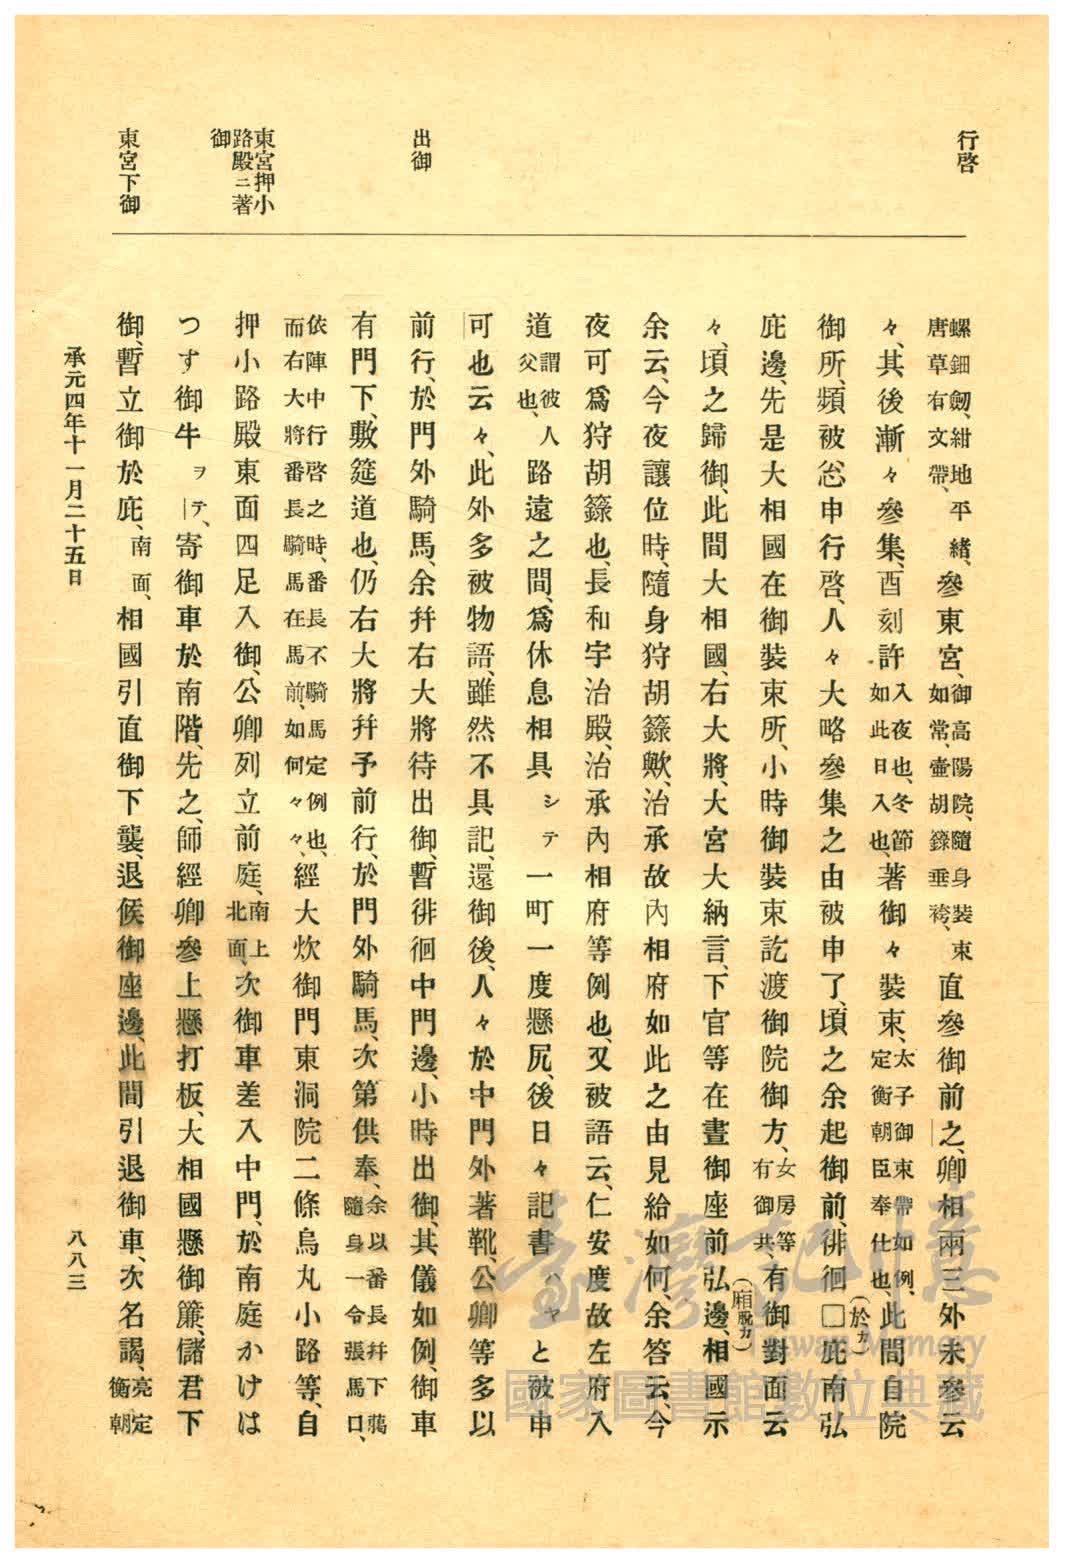 行啓
出御
東宮押小
路殿ニ著
御
東宮下御
螺鈿劒、紺地平緒、
唐草有文帶、
參東宮、
御高陽院、隨身裝束
如常、壷胡籙垂袴、
直參御前之、卿相兩三外未參云
々、其後漸々參集、酉刻許
入夜也、冬節
如此日入也、
著御々裝束、
太子御束帶如例、
定衡朝臣奉仕也、
此間自院
御所、頻被忩申行啓、人々大略參集之由被申了、頃之余起御前、徘徊□庇南弘
(於カ)
庇邊、先是大相國在御裝束所、小時御裝束訖渡御院御方、
女房等
有御共、
有御對面云
々、頃之歸御、此間大相國、右大將、大宮大納言、下官等在晝御座前弘邊、相國示
(廂脱カ)
余云、今夜讓位時、隨身狩胡籙歟、治承故內相府如此之由見給如何、余答云、今
夜可爲狩胡籙也、長和宇治殿、治承內相府等例也、又被語云、仁安度故左府入
道
謂彼人
父也、
路遠之間、爲休息相具シテ一町一度懸尻、後日々記書ハヤと被申
可也云々、此外多被物語、雖然不具記、還御後、人々於中門外著靴、公卿等多以
前行、於門外騎馬、余幷右大將待出御、暫徘徊中門邊、小時出御、其儀如例、御車
有門下、敷筵道也、仍右大將幷予前行、於門外騎馬、次第供奉、
余以番長幷下﨟
隨身一令張馬口、
依陣中行啓之時、番長不騎馬定例也、
而右大將番長騎馬在馬前、如何々々、
經大炊御門東洞院二條烏丸小路等、自
押小路殿東面四足入御、公卿列立前庭、
南上
北面、
次御車差入中門、於南庭かけは
つす御牛ヲテ、寄御車於南階、先之、師經卿參上懸打板、大相國懸御簾、儲君下
御、暫立御於庇、
南面、
相國引直御下襲、退候御座邊、此間引退御車、次名謁、
亮定
衡朝
承元四年十一月二十五日
八八三
臺灣記憶
Taiwan Memory
國家圖書館數位典藏